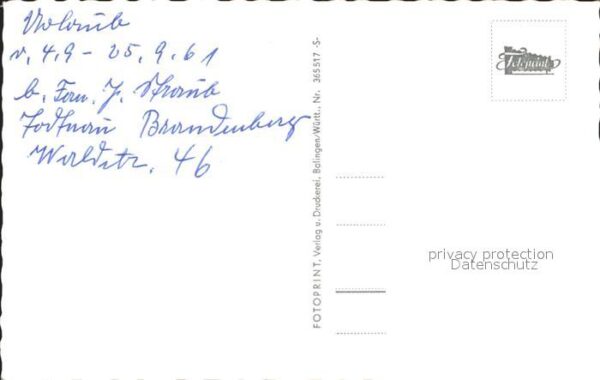 Urlaub
v. 4.9 - 25.9.61
b. Fam. J. Straub
Todtnau Brandenberg
Waldstr. 46
FOTOPRINT, Verlag u. Druckerei, Balingen/Württ., Nr. 365517 -S-
Fotoprint
privacy protection
Datenschutz